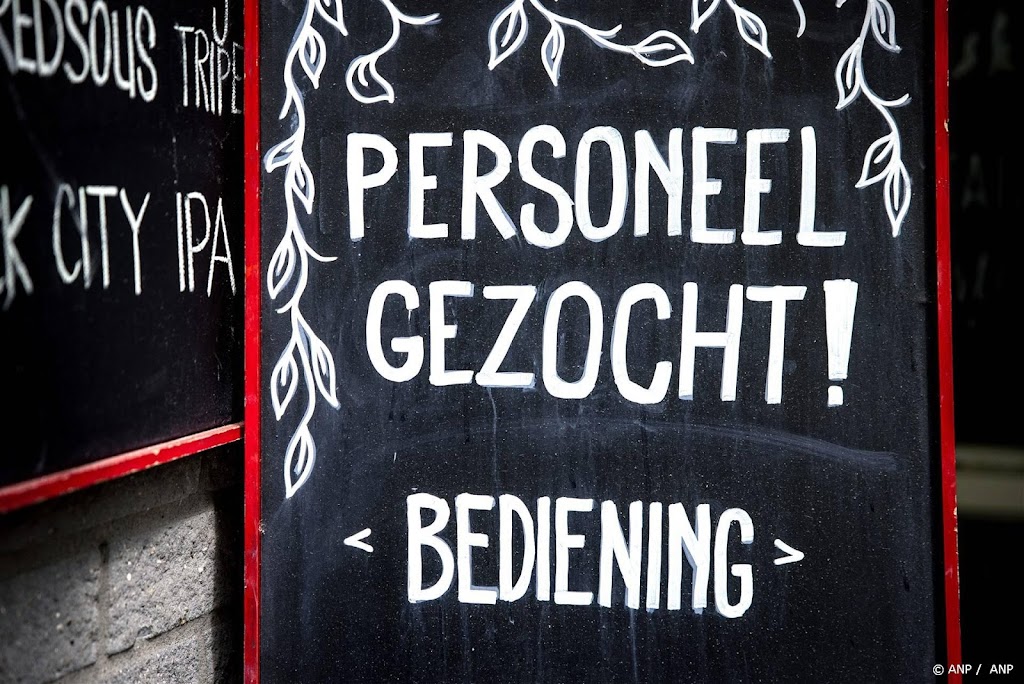 TRIPE
CITY IPA
PERSONEEL
GEZOCHT!
< BEDIENING >
© ANP / ANP